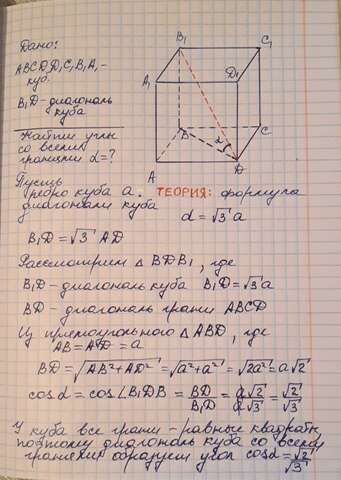 Дано:
ABCDD₁C₁B₁A₁ -
куб.
B₁D - диагональ
куба
Найти углы
со всеми
гранями α = ?
B₁
C₁
A₁
D₁
α
B
C
A
D
Пусть
ребро куба a. ТЕОРИЯ: формула
диагонали куба
d = √3 a
B₁D = √3 AD
Рассмотрим △ BDB₁, где
B₁D - диагональ куба B₁D = √3 a
BD - диагональ грани ABCD
Из прямоугольного △ ABD, где
AB = AD = a
BD = √AB² + AD² = √a² + a² = √2a² = a√2
cos α = cos ∠B₁DB = BD/B₁D = a√2/a√3 = √2/√3
У куба все грани - равные квадраты,
поэтому диагональ куба со всеми
гранями образуют угол cos α = √2/√3